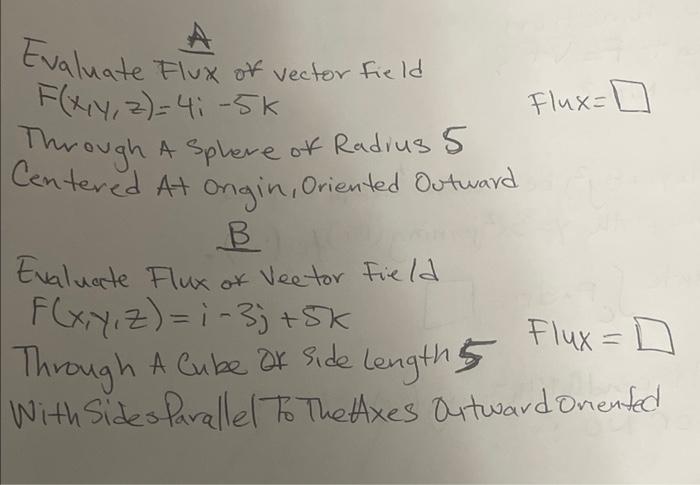 A
Evaluate Flux of vector field
F(x,y,z)=4i -5k
Flux=□
Through A Sphere of Radius 5
Centered At Origin, Oriented Outward
B
Evaluate Flux of Vector Field
F(x,y,z)=i-3j+5k
Flux=□
Through A Cube of Side Length 5
With Sides Parallel To The Axes Outward Oriented